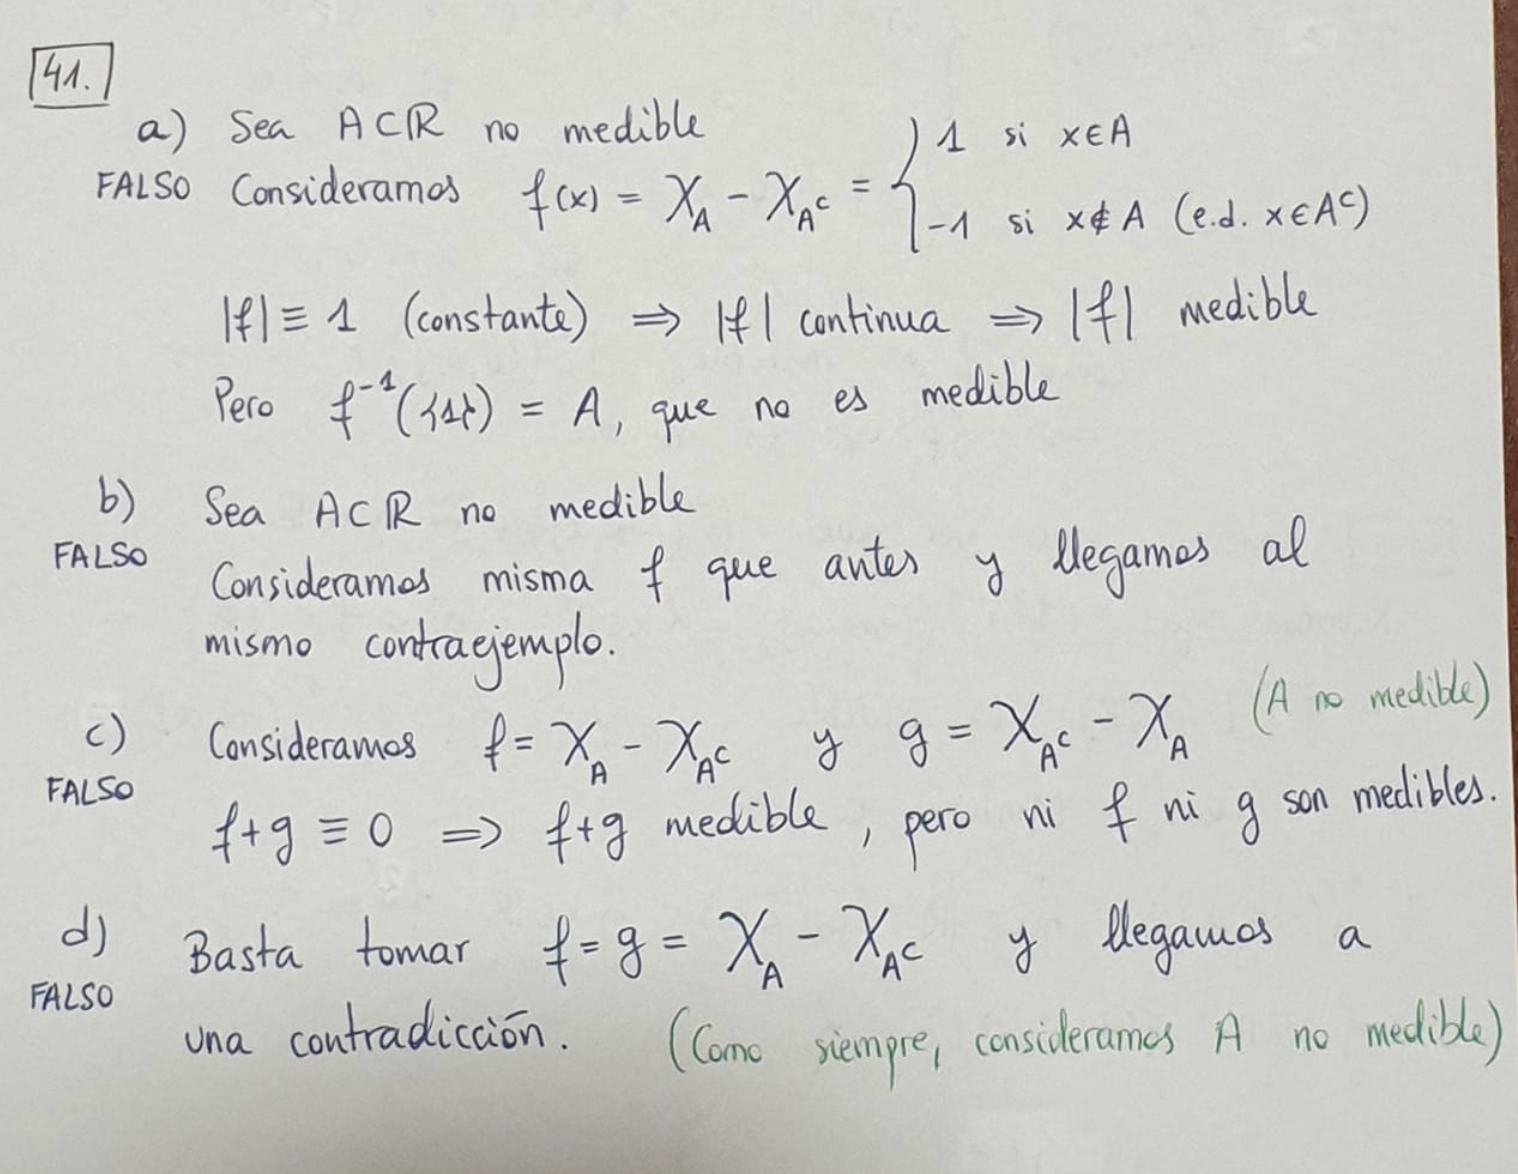 41.
a) Sea A⊂ℝ no medible
FALSO Consideramos f(x) = χ_A - χ_{A^c} = { 1 si x∈A
-1 si x∉A (e.d. x∈A^c)
|f| ≡ 1 (constante) ⟹ |f| continua ⟹ |f| medible
Pero f^{-1}({1}) = A, que no es medible
b) Sea A⊂ℝ no medible
FALSO
Consideramos misma f que antes y llegamos al
mismo contraejemplo.
c) Consideramos f = χ_A - χ_{A^c} y g = χ_{A^c} - χ_A (A no medible)
FALSO
f+g ≡ 0 ⟹ f+g medible, pero ni f ni g son medibles.
d) Basta tomar f = g = χ_A - χ_{A^c} y llegamos a
FALSO
una contradicción. (Como siempre, consideramos A no medible)